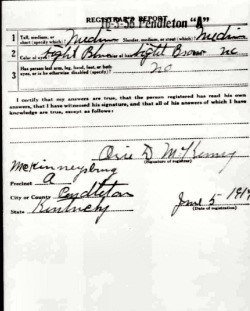 REGISTRAR'S REPORT
16-3-56 Pendleton "A"
1 Tall, medium, or short (specify which) Medium Slender, medium, or stout (which) Medium
2 Color of eyes Light Brown Color of hair Light Brown no
3 Has person lost arm, leg, hand, foot, or both eyes, or is he otherwise disabled (specify)? no
I certify that my answers are true, that the person registered has read his own answers, that I have witnessed his signature, and that all of his answers of which I have knowledge are true, except as follows:
D McKenney
(Signature of registrar)
McKinneysburg
Precinct A
City or County Pendleton
State Kentucky
June 5 1917
(Date of registration)